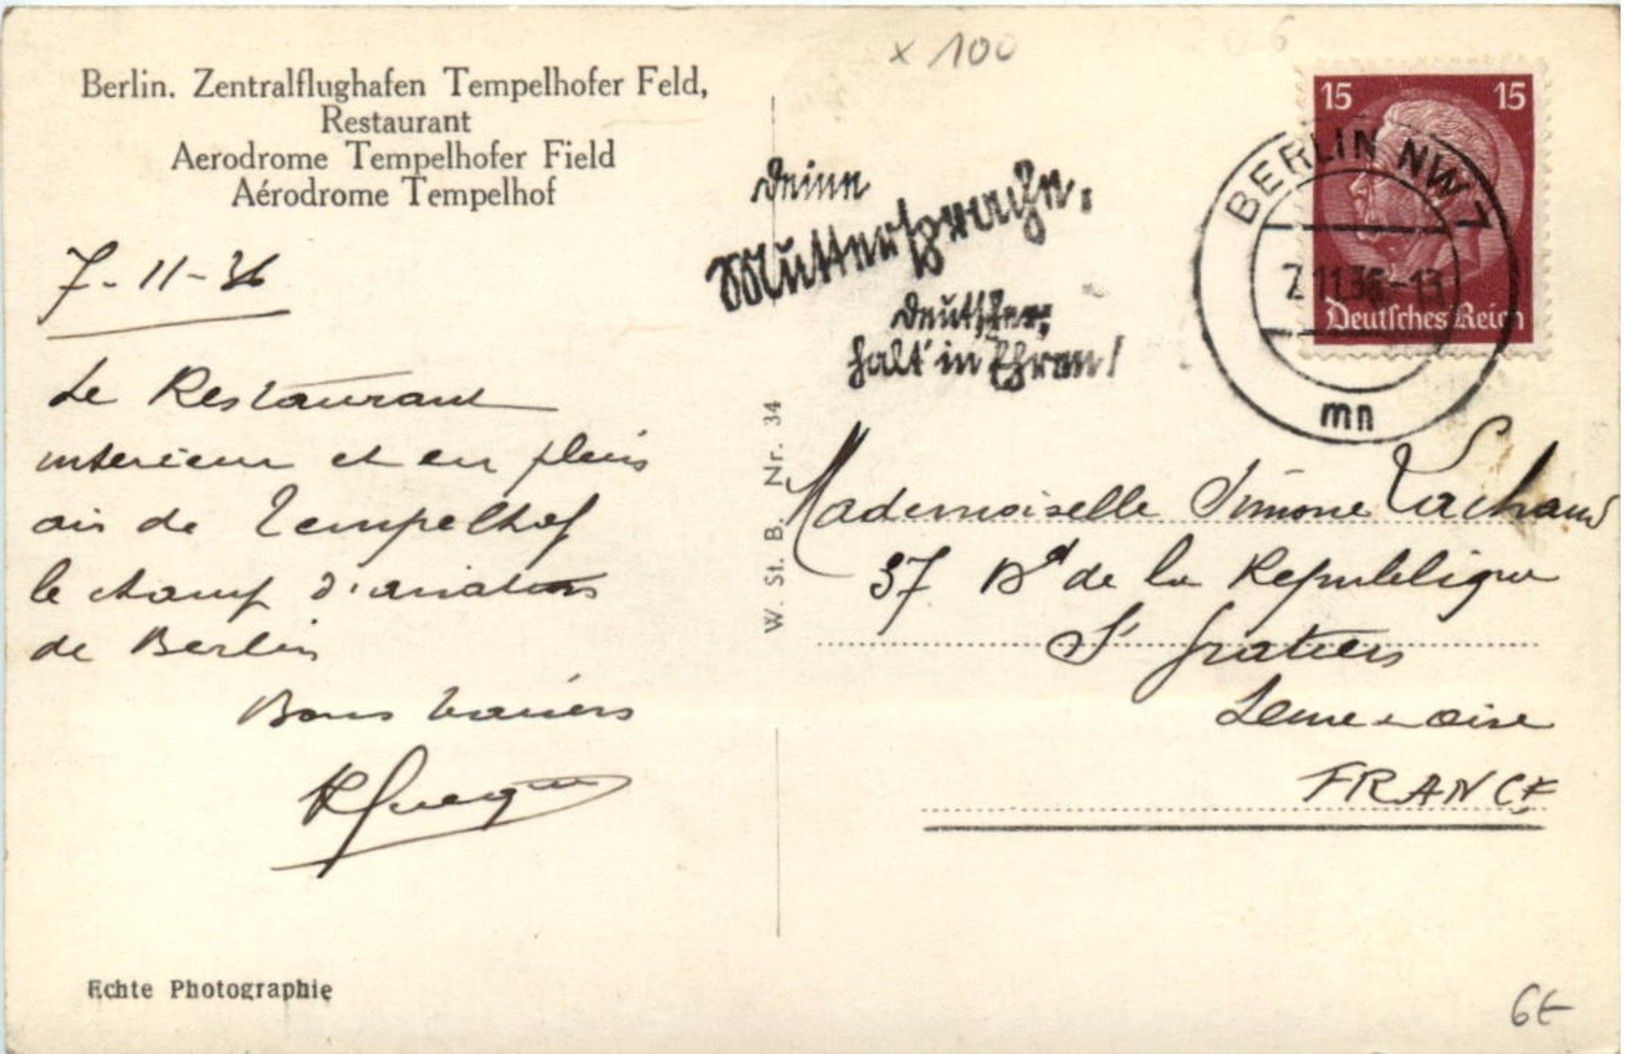 Berlin. Zentralflughafen Tempelhofer Feld,
Restaurant
Aerodrome Tempelhofer Field
Aérodrome Tempelhof
7-11-36
Le Restaurant
interieur et en plein
air de Tempelhof
le champ d'aviation
de Berlin
Bons baisers
Echte Photographie
W. St. B. Nr. 34
x 100
Deine
Muttersprache,
Deutscher,
halt' in Ehren!
15 15
Deutsches Reich
BERLIN NW 7
7.11.36-13
mn
Mademoiselle Simone Lachaud
37 Bd de la Republique
St Gratiens
Seine e oise
FRANCE
6€